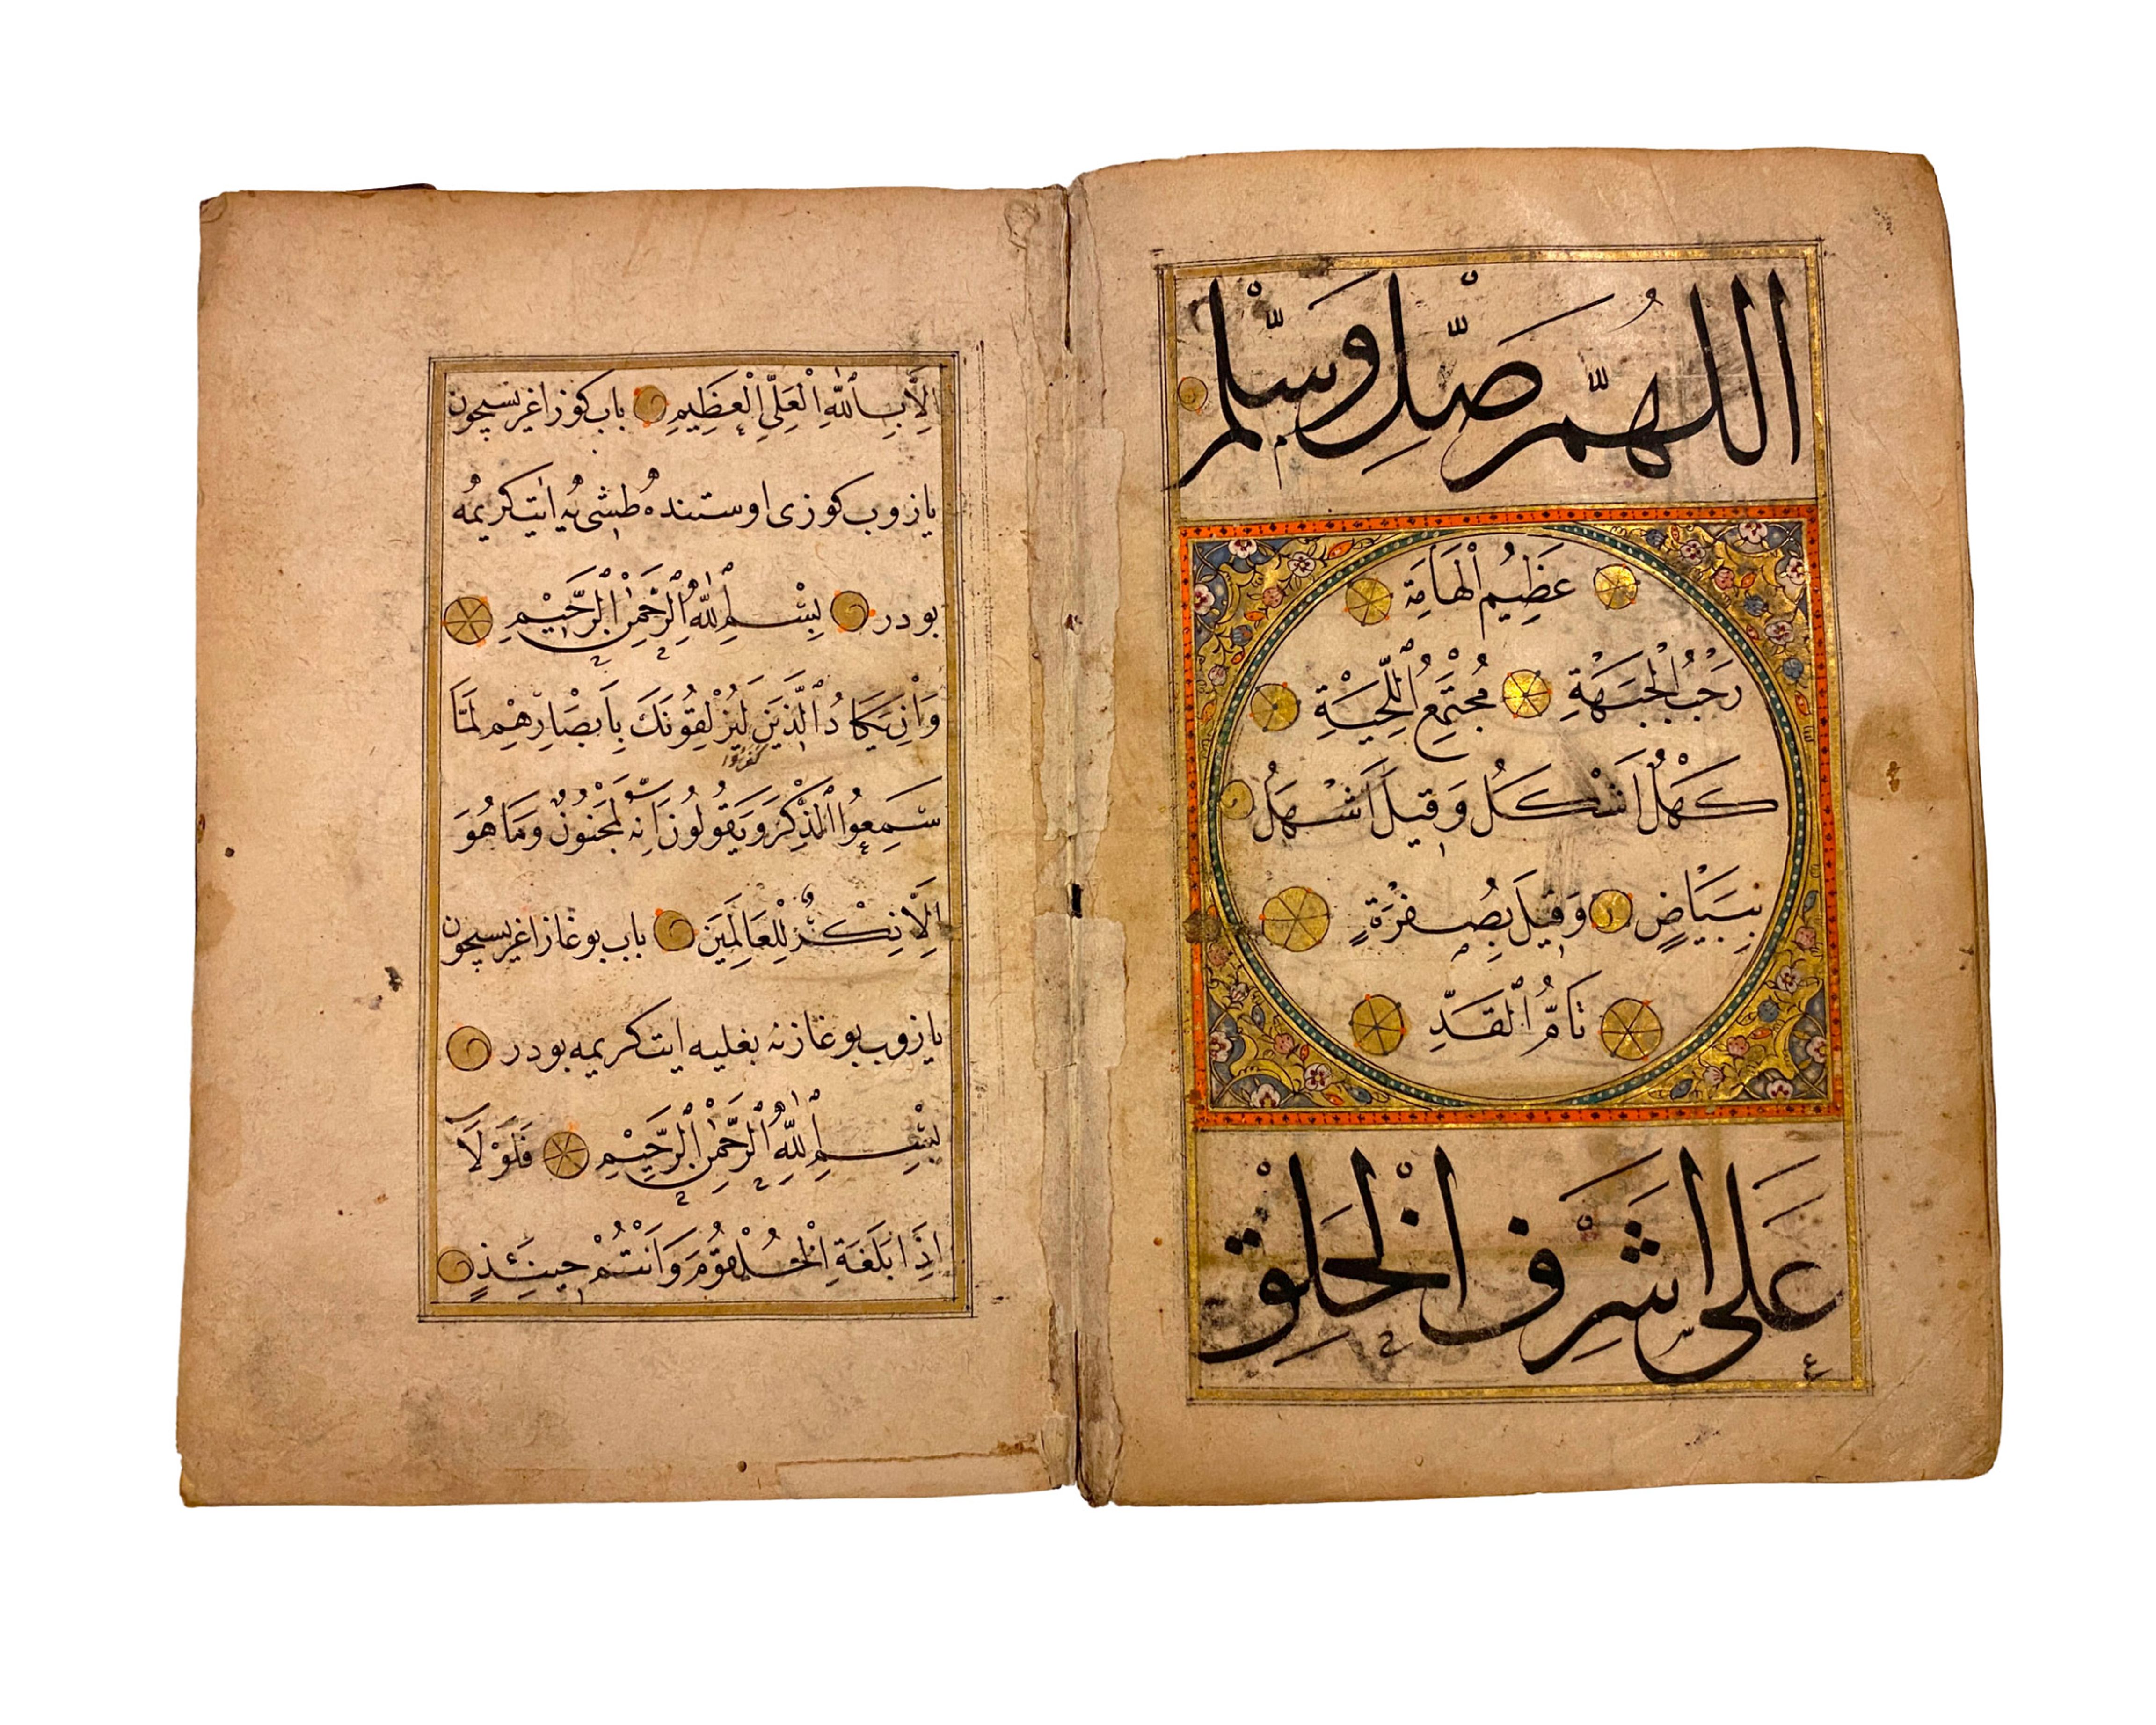 اللهُمَّ صَلِّ وَسَلِّمْ
عَظِيمُ الْهَامَةِ
رَحْبُ الْجَبْهَةِ مُجْتَمِعُ اللِّحْيَةِ
كَهْلٌ اَشْكَلُ وَقِيلَ اَشْهَلُ
بِبَيَاضٍ وَقِيلَ بِصُفْرَةٍ
تَامُّ الْقَدِّ
عَلَى اَشْرَفِ الْخَلْقِ
اِلَّا بِاللّٰهِ الْعَلِيِّ الْعَظِيمِ باب كوز اغريسيچون
يازوب كوزى اوستنده طشىيه ايت كريمه
بودر بِسْمِ اللّٰهِ الرَّحْمٰنِ الرَّحِيْمِ
وَاِنْ يَكَادُ الَّذَيِنَ لَيُزْلِقُونَكَ بِاَبْصَارِهِمْ لَمَّا
كفروا
سَمِعُوا الذِّكْرَ وَيَقُولُونَ اِنَّهُ لَمَجْنُونٌ وَمَا هُوَ
اِلَّا ذِكْرٌ لِلْعَالَمِينَ باب بوغاز اغريسيچون
يازوب بوغازنه بغليه ايت كريمه بودر
بِسْمِ اللّٰهِ الرَّحْمٰنِ الرَّحِيْمِ فَلَوْلَا
اِذَا بَلَغَةِ الْحُلْقُومَ وَاَنْتُمْ حِينَئِذٍ